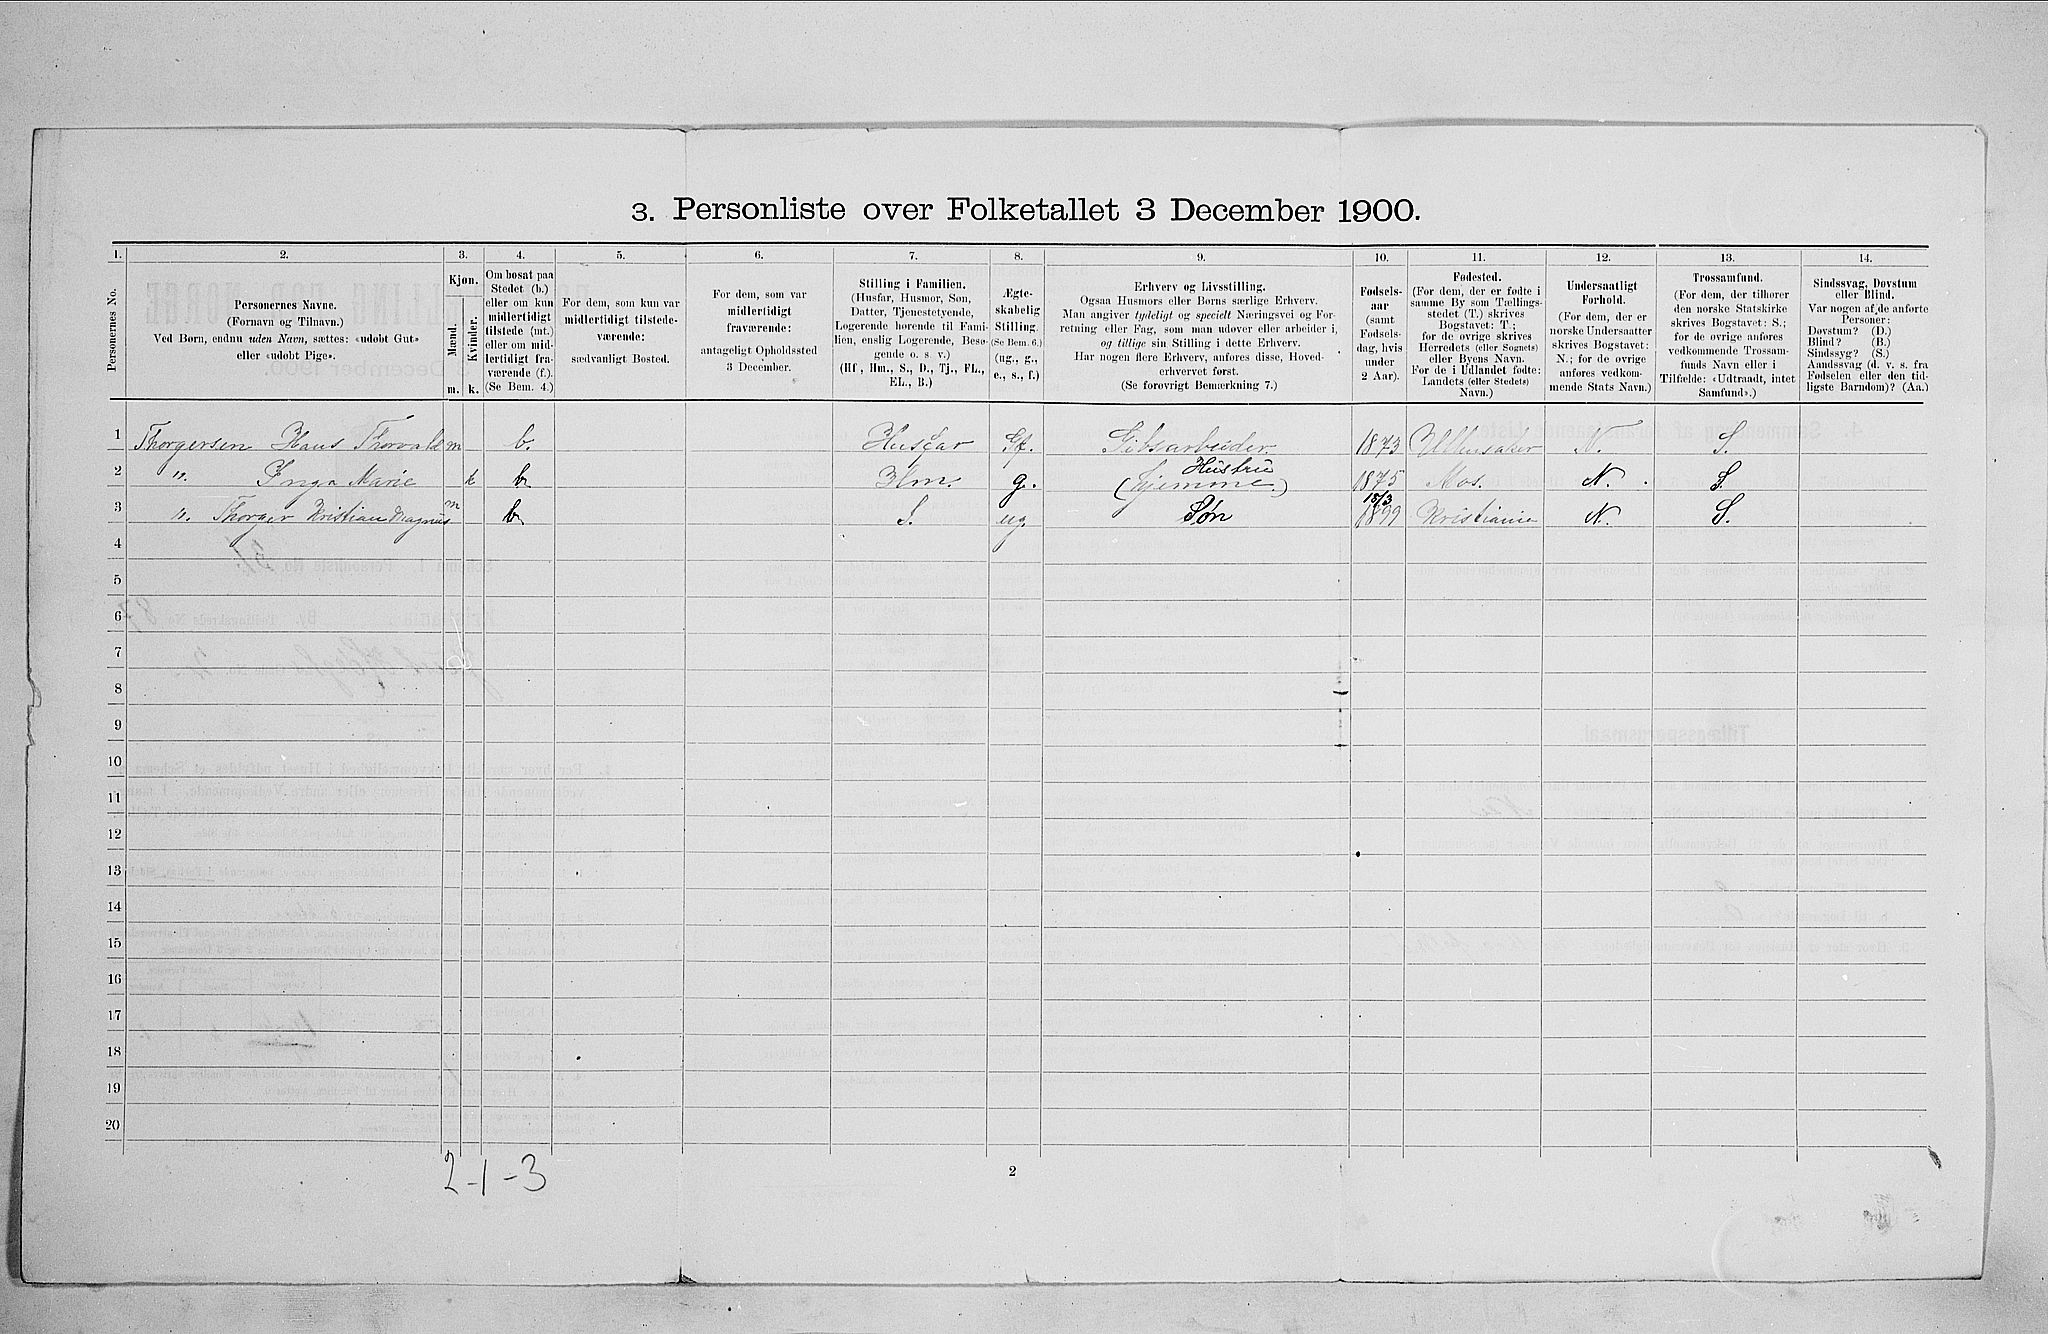 3. Personliste over Folketallet 3 December 1900.
1. 2. 3. 4. 5. 6. 7. 8. 9. 10. 11. 12. 13. 14.
Personernes No.
Personernes Navne.
(Fornavn og Tilnavn.)
Ved Børn, endnu uden Navn, sættes: «udøbt Gut»
eller «udøbt Pige».
Kjøn.
Mænd.
Kvinder.
m. k.
Om bosat paa
Stedet (b.)
eller om kun
midlertidigt
tilstede (mt.)
eller om mid-
lertidigt fra-
værende (f.).
(Se Bem. 4.)
For dem, som kun var
midlertidigt tilstede-
værende:
sædvanligt Bosted.
For dem, som var
midlertidigt
fraværende:
antageligt Opholdssted
3 December.
Stilling i Familien.
(Husfar, Husmor, Søn,
Datter, Tjenestetyende,
Logerende hørende til Fami-
lien, enslig Logerende, Besø-
gende o. s. v.)
(Hf., Hm., S., D., Tj., FL.,
EL., B.)
Ægte-
skabelig
Stilling.
(Se Bem. 6.)
(ug., g.,
e., s., f.)
Erhverv og Livsstilling.
Ogsaa Husmors eller Børns særlige Erhverv.
Man angiver tydeligt og specielt Næringsvei og For-
retning eller Fag, som man udøver eller arbeider i,
og tillige sin Stilling i dette Erhverv.
Har nogen flere Erhverv, anføres disse, Hoved-
erhvervet først.
(Se forøvrigt Bemærkning 7.)
Fødsels-
aar
(samt
Fødsels-
dag, hvis
under
2 Aar).
Fødested.
(For dem, der er fødte i
samme By som Tællings-
stedet (T.) skrives
Bogstavet: T.;
for de øvrige skrives
Herredets (eller Sognets)
eller Byens Navn.
For de i Udlandet fødte:
Landets (eller Stedets)
Navn.)
Undersaatligt
Forhold.
(For dem, der er
norske Undersaatter
skrives Bogstavet:
N.; for de øvrige
anføres vedkom-
mende Stats Navn.)
Trossamfund.
(For dem, der tilhører
den norske Statskirke
skrives Bogstavet: S.;
for de øvrige anføres
vedkommende Trossam-
funds Navn eller i
Tilfælde: «Udtraadt, intet
Samfund».)
Sindssvag, Døvstum
eller Blind.
Var nogen af de anførte
Personer:
Døvstum? (D.)
Blind? (B.)
Sindssyg? (S.)
Aandssvag (d. v. s. fra
Fødselen eller den tid-
ligste Barndom)? (Aa.)
1 Thorgersen Hans Thorvald m b. Husfar Gf. Gibsarbeider 1873 Ullensaker N. S.
2 ". Inga Marie k b Hm. g. (Hjemme.) Hustru 1875 Mos. N. S.
3 ". Thorger Kristian Magnus m b S. ug. Søn 18/3 1899 Kristiania N. S.
4
5
6
7
8
9
10
11
12
13
14
15
16
17
18
19
20
2-1-3
2